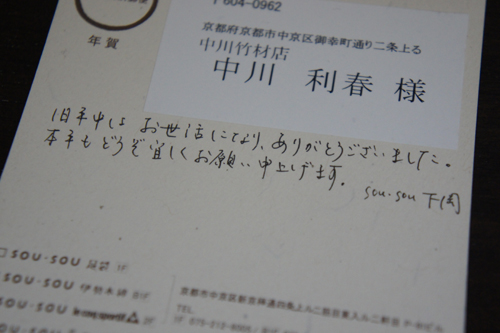 〒604-0962
年賀
京都府京都市中京区御幸町通り二条上る
中川竹材店
中川 利春 様
旧年中は お世話になり、ありがとうございました。
本年もどうぞ宜しくお願い申上げます。
sou・sou 下岡
SOU・SOU 足袋 1F
SOU・SOU 伊勢木綿
SOU・SOU le coq sportif 2F
京都市中京区新京極通四条上ル二筋目東入ル二軒目 P-91ビル
TEL.